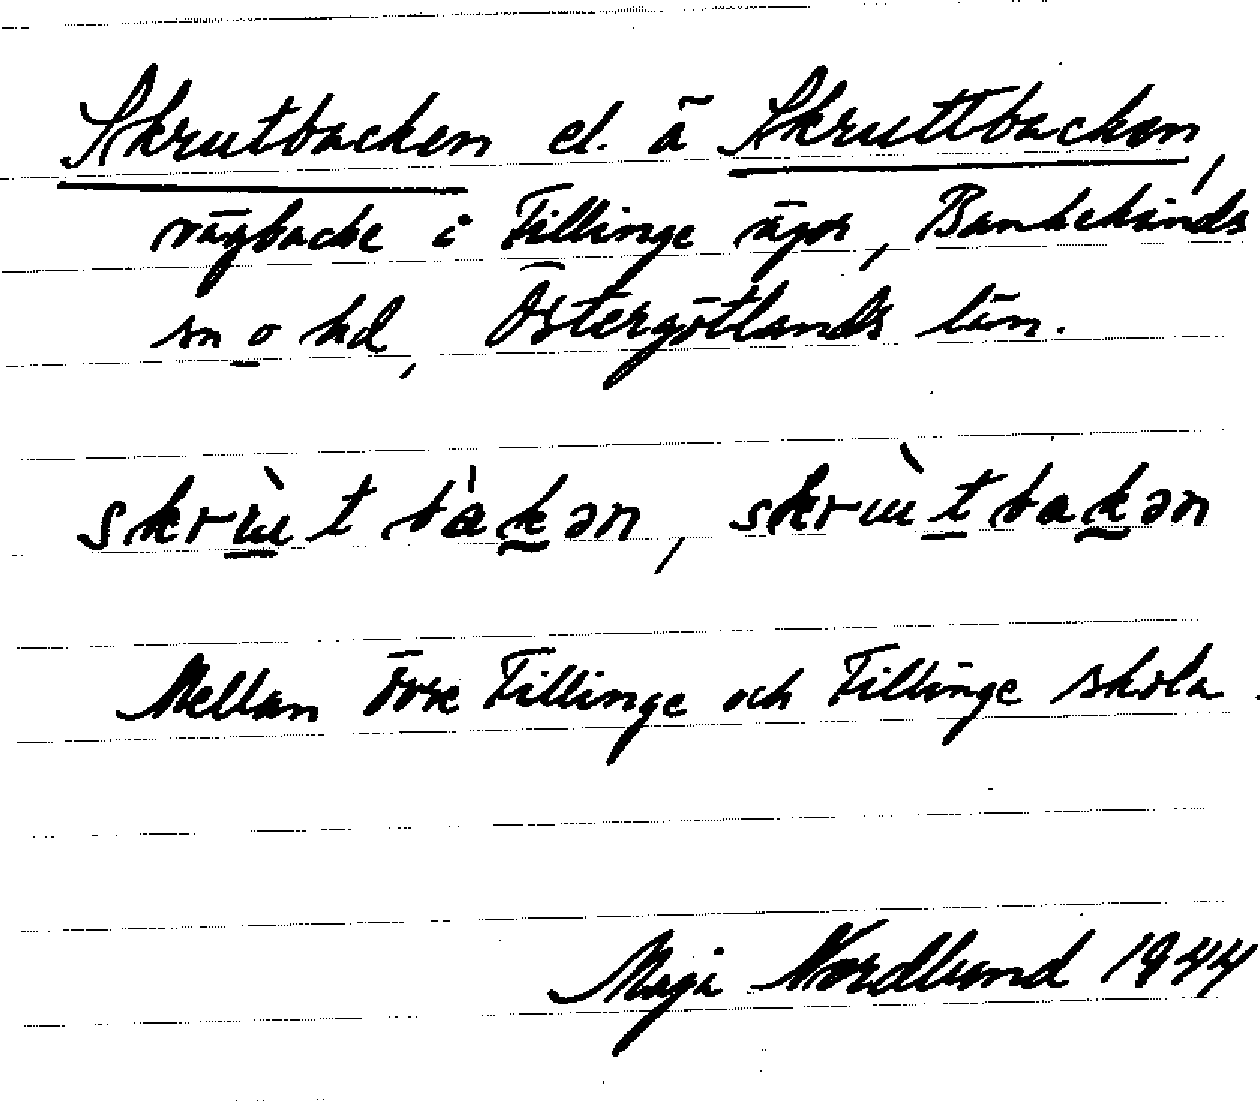 Skrutbacken el. ä Skruttbacken,
vägbacke i Fillinge ägor, Bankekinds
sn o hd, Östergötlands län.
skrɯ̀t bákən, skrɯ̀tbakən
Mellan Övre Fillinge och Fillinge skola.
Maja Nordlund 1944